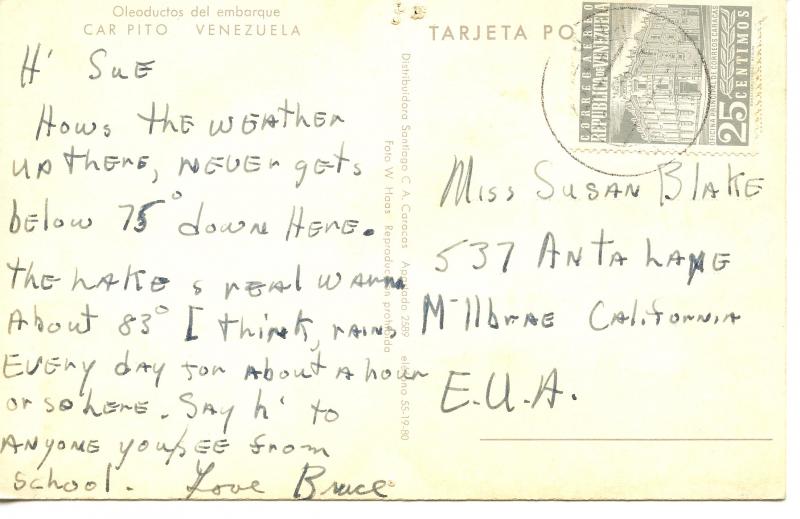 Oleoductos del embarque
CARIPITO VENEZUELA
Hi Sue
Hows the weather
up there, never gets
below 75° down Here.
the Lake s real warm
About 83° I think, rains
Every day for about a hour
or so here. Say hi to
anyone you see from
school. Love Bruce
Distribuidora Santiago C. A. Caracas Apartado 2589 Teléfono 55-19-80
Foto W. Haas Reproducción prohibida
TARJETA PO
CORREO AEREO
REPUBLICA DE VENEZUELA
OFICINA PRINCIPAL DE CORREOS CARACAS
25 CENTIMOS
Miss Susan Blake
537 Anta Lane
Millbrae California
E.U.A.